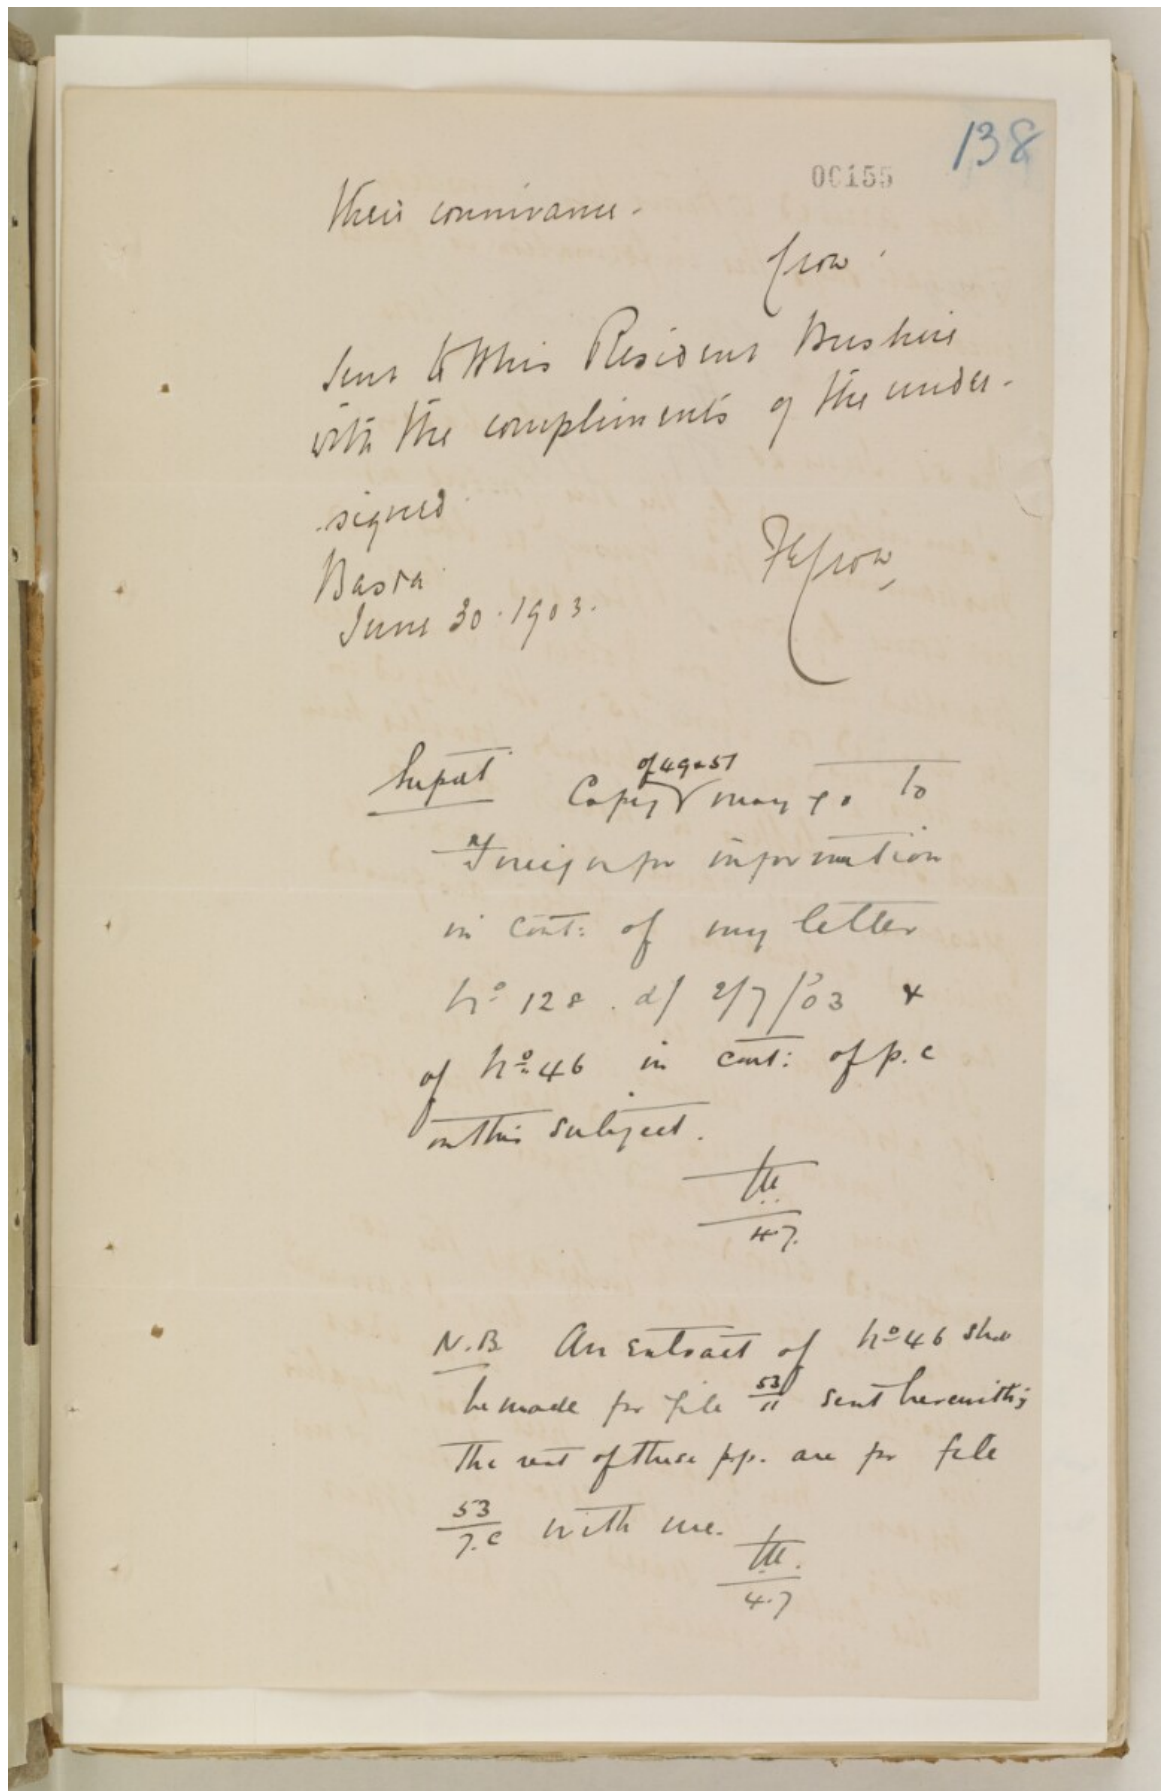 138
00155
their connivance.
Crow.
Sent to His Resident Bushire
with the compliments of the under-
signed.
Basra.
June 30. 1903.
FECrow
Supdt
of 49 & 51
Copy may go to
Foreign for information
in cont: of my letter
No 128. d/ 2/7/03 &
of No 46 in cont: of p.c
on this subject.
4.7.
N.B. An Extract of No 46 shd
be made for file 53/11 sent herewith;
The rest of these pp. are for file
53/7.c with me.
4.7